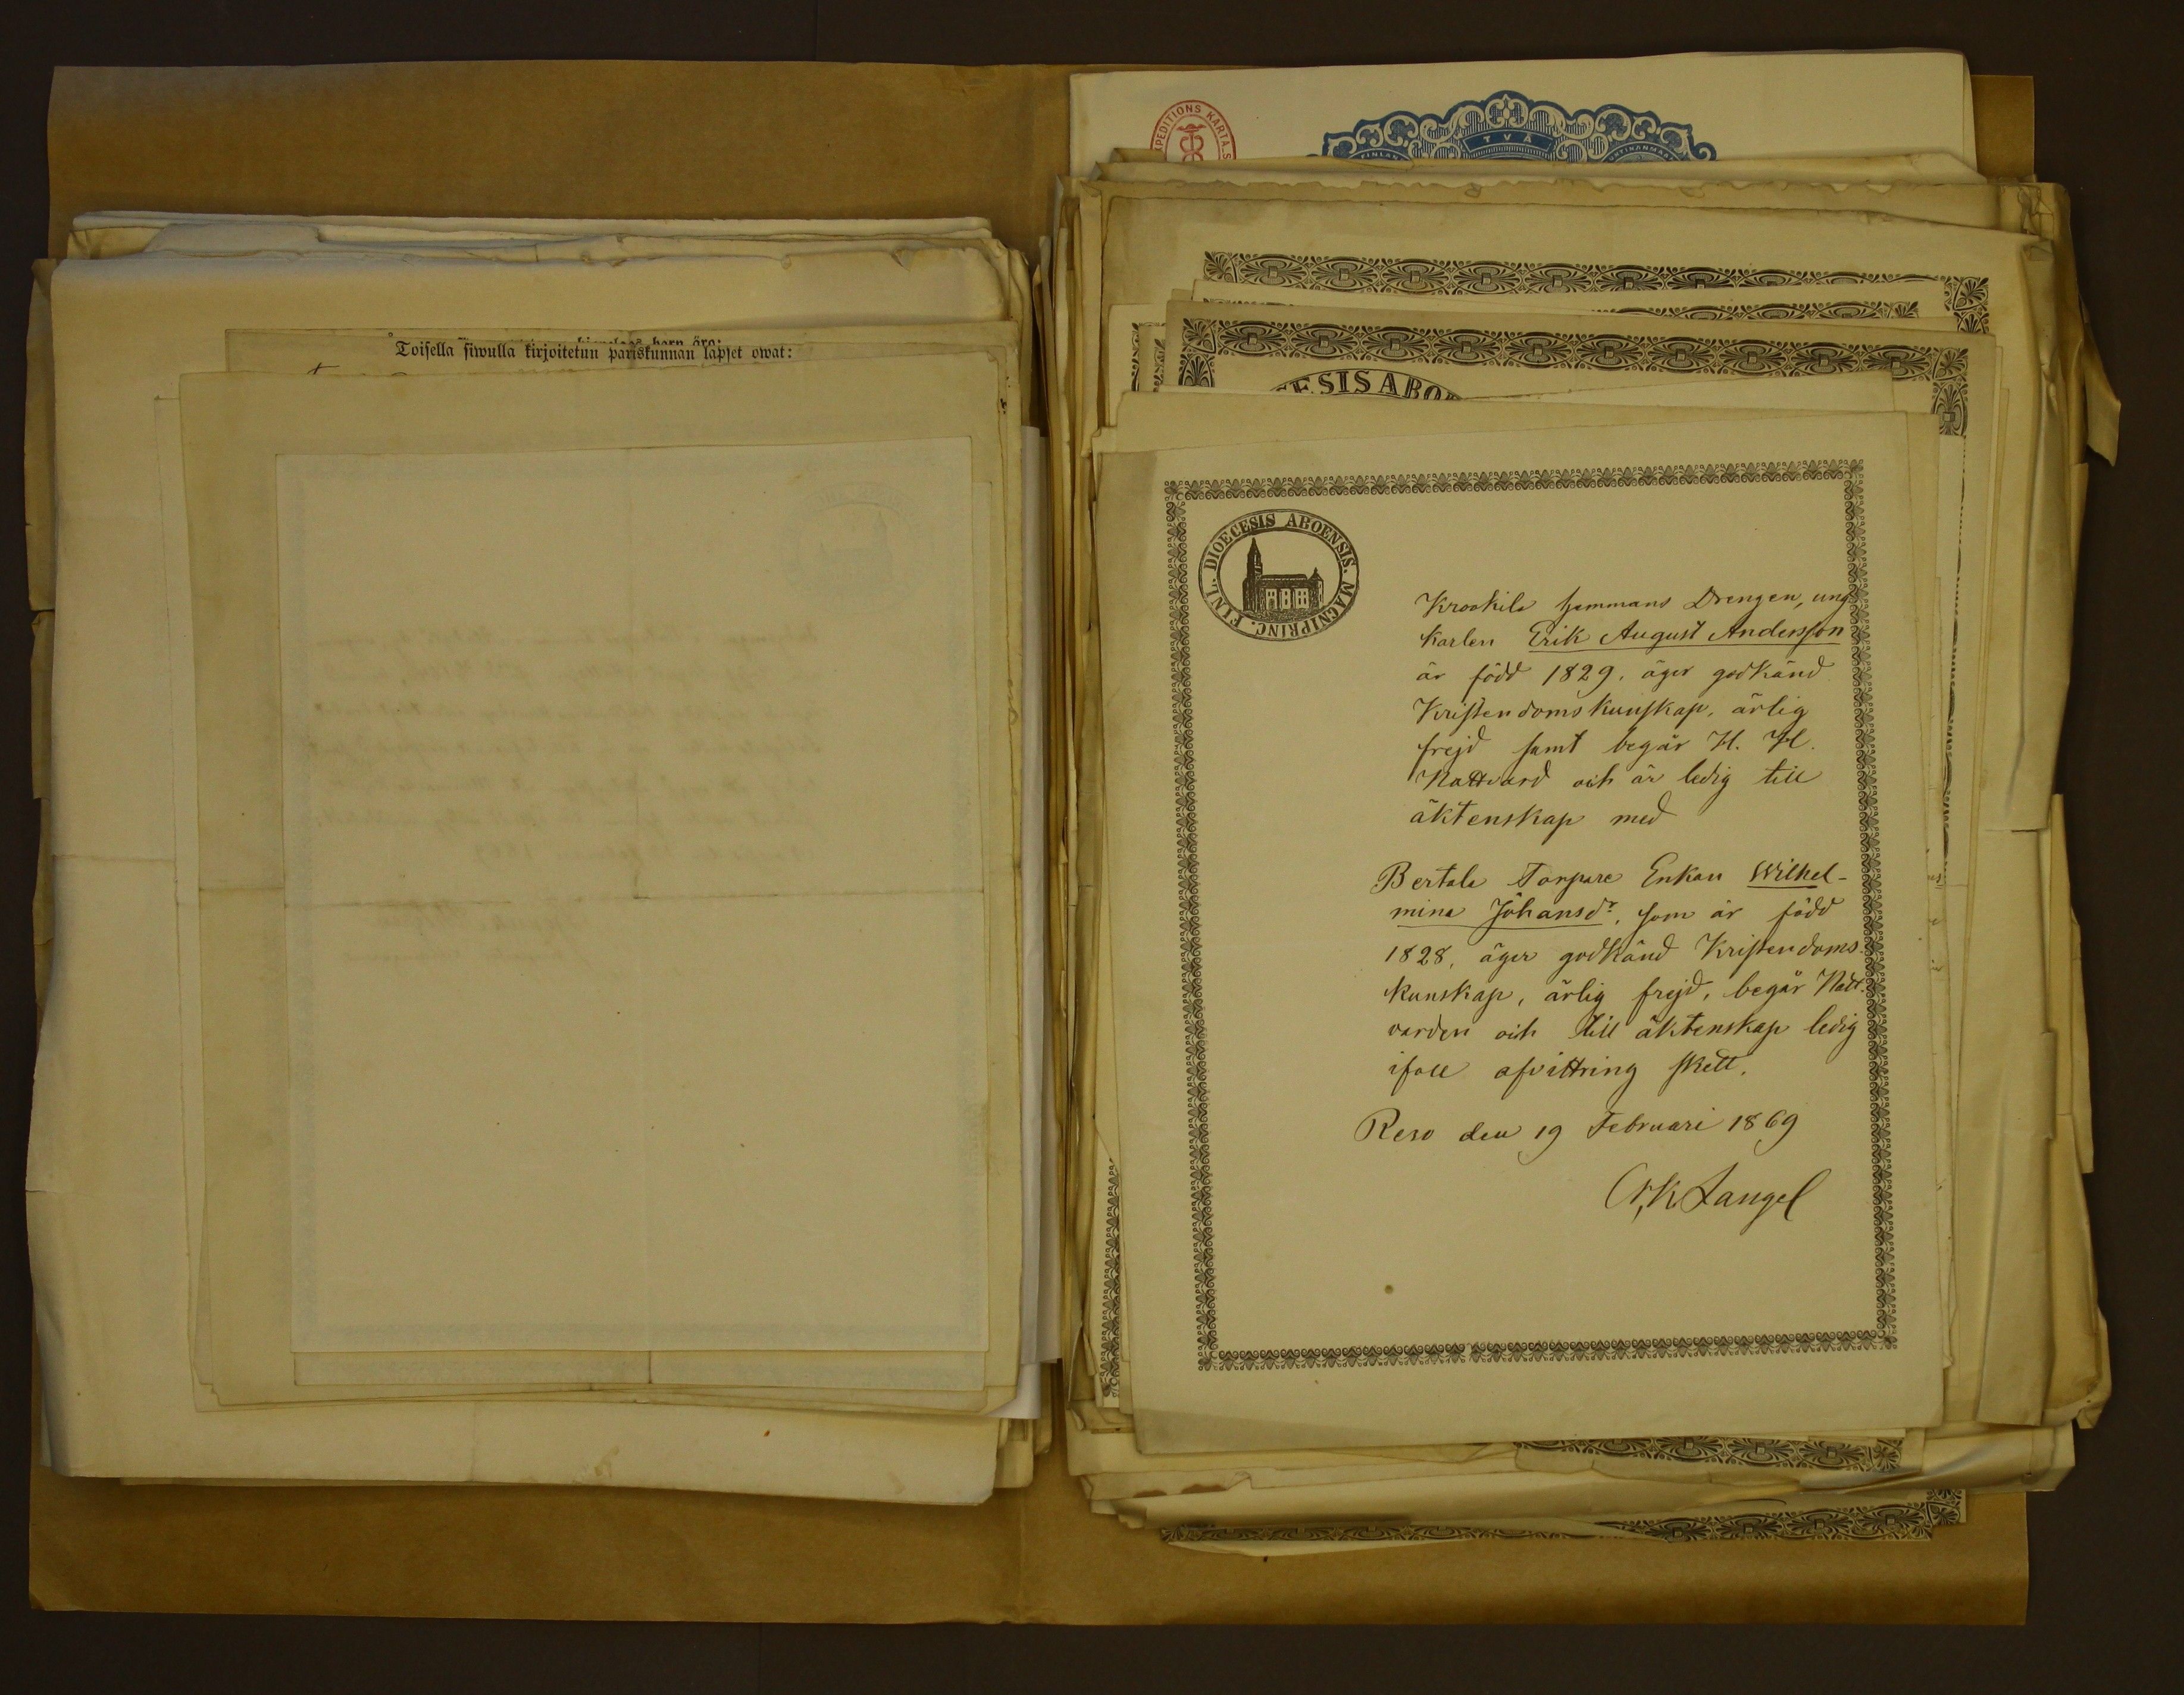 Toisella siwulla kirjoitetun pariskunnan lapset owat:
EXPEDITIONS KARTA.S
TVÅ
ESIS ABO
DIOECESIS ABOENSIS. MAGNIPRINC. FINL.
Krookila hemmans Drengen, ung
Karlen Erik August Andersson
är född 1829, äger godkänd
Kristendoms kunskap, ärlig
frejd samt begår H. H.
Nattvard och är ledig till
äktenskap med
Bertala Torpare Enkan Wilhel-
mina Johansdr, som är född
1828, äger godkänd Kristendoms
kunskap, ärlig frejd, begår Natt-
varden och till äktenskap ledig
ifall afvittring skett.
Reso den 19 Februari 1869
K Langel